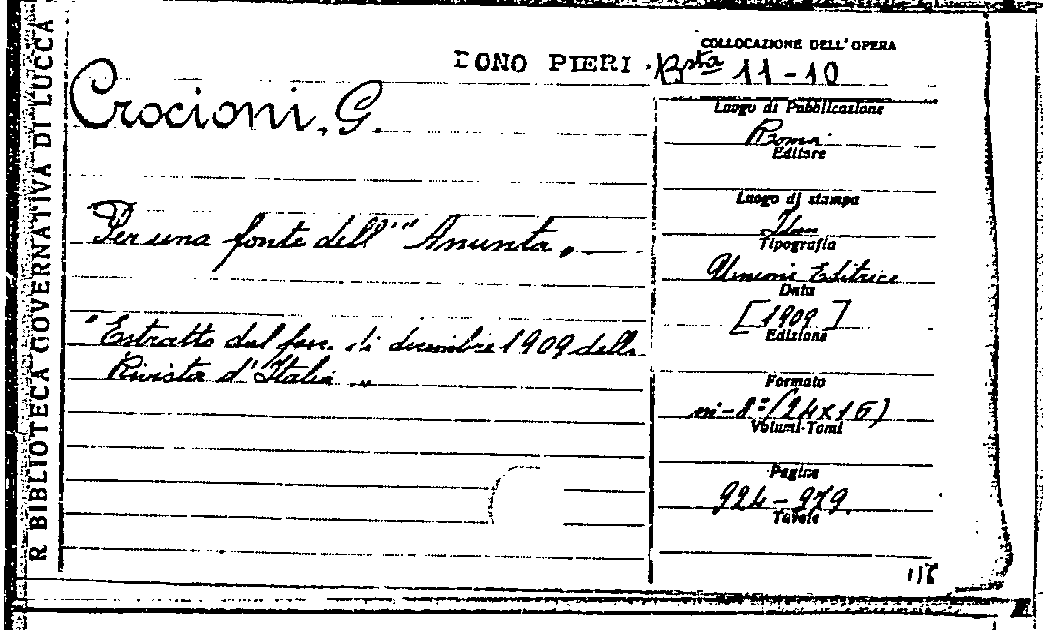 R BIBLIOTECA GOVERNATIVA DI LUCCA
COLLOCAZIONE DELL'OPERA
DONO PIERI. Bsta 11-10
Crocioni, G.
Luogo di Pubblicazione
Roma
Editore
Per una fonte dell'"Aminta„
Luogo di stampa
Idem
Tipografia
Unione Editrice
Data
[1909]
Edizione
"Estratto dal fasc. di dicembre 1909 della
Rivista d'Italia„
Formato
in-8°(24x16)
Volumi-Tomi
Pagine
924-979.
Tavole